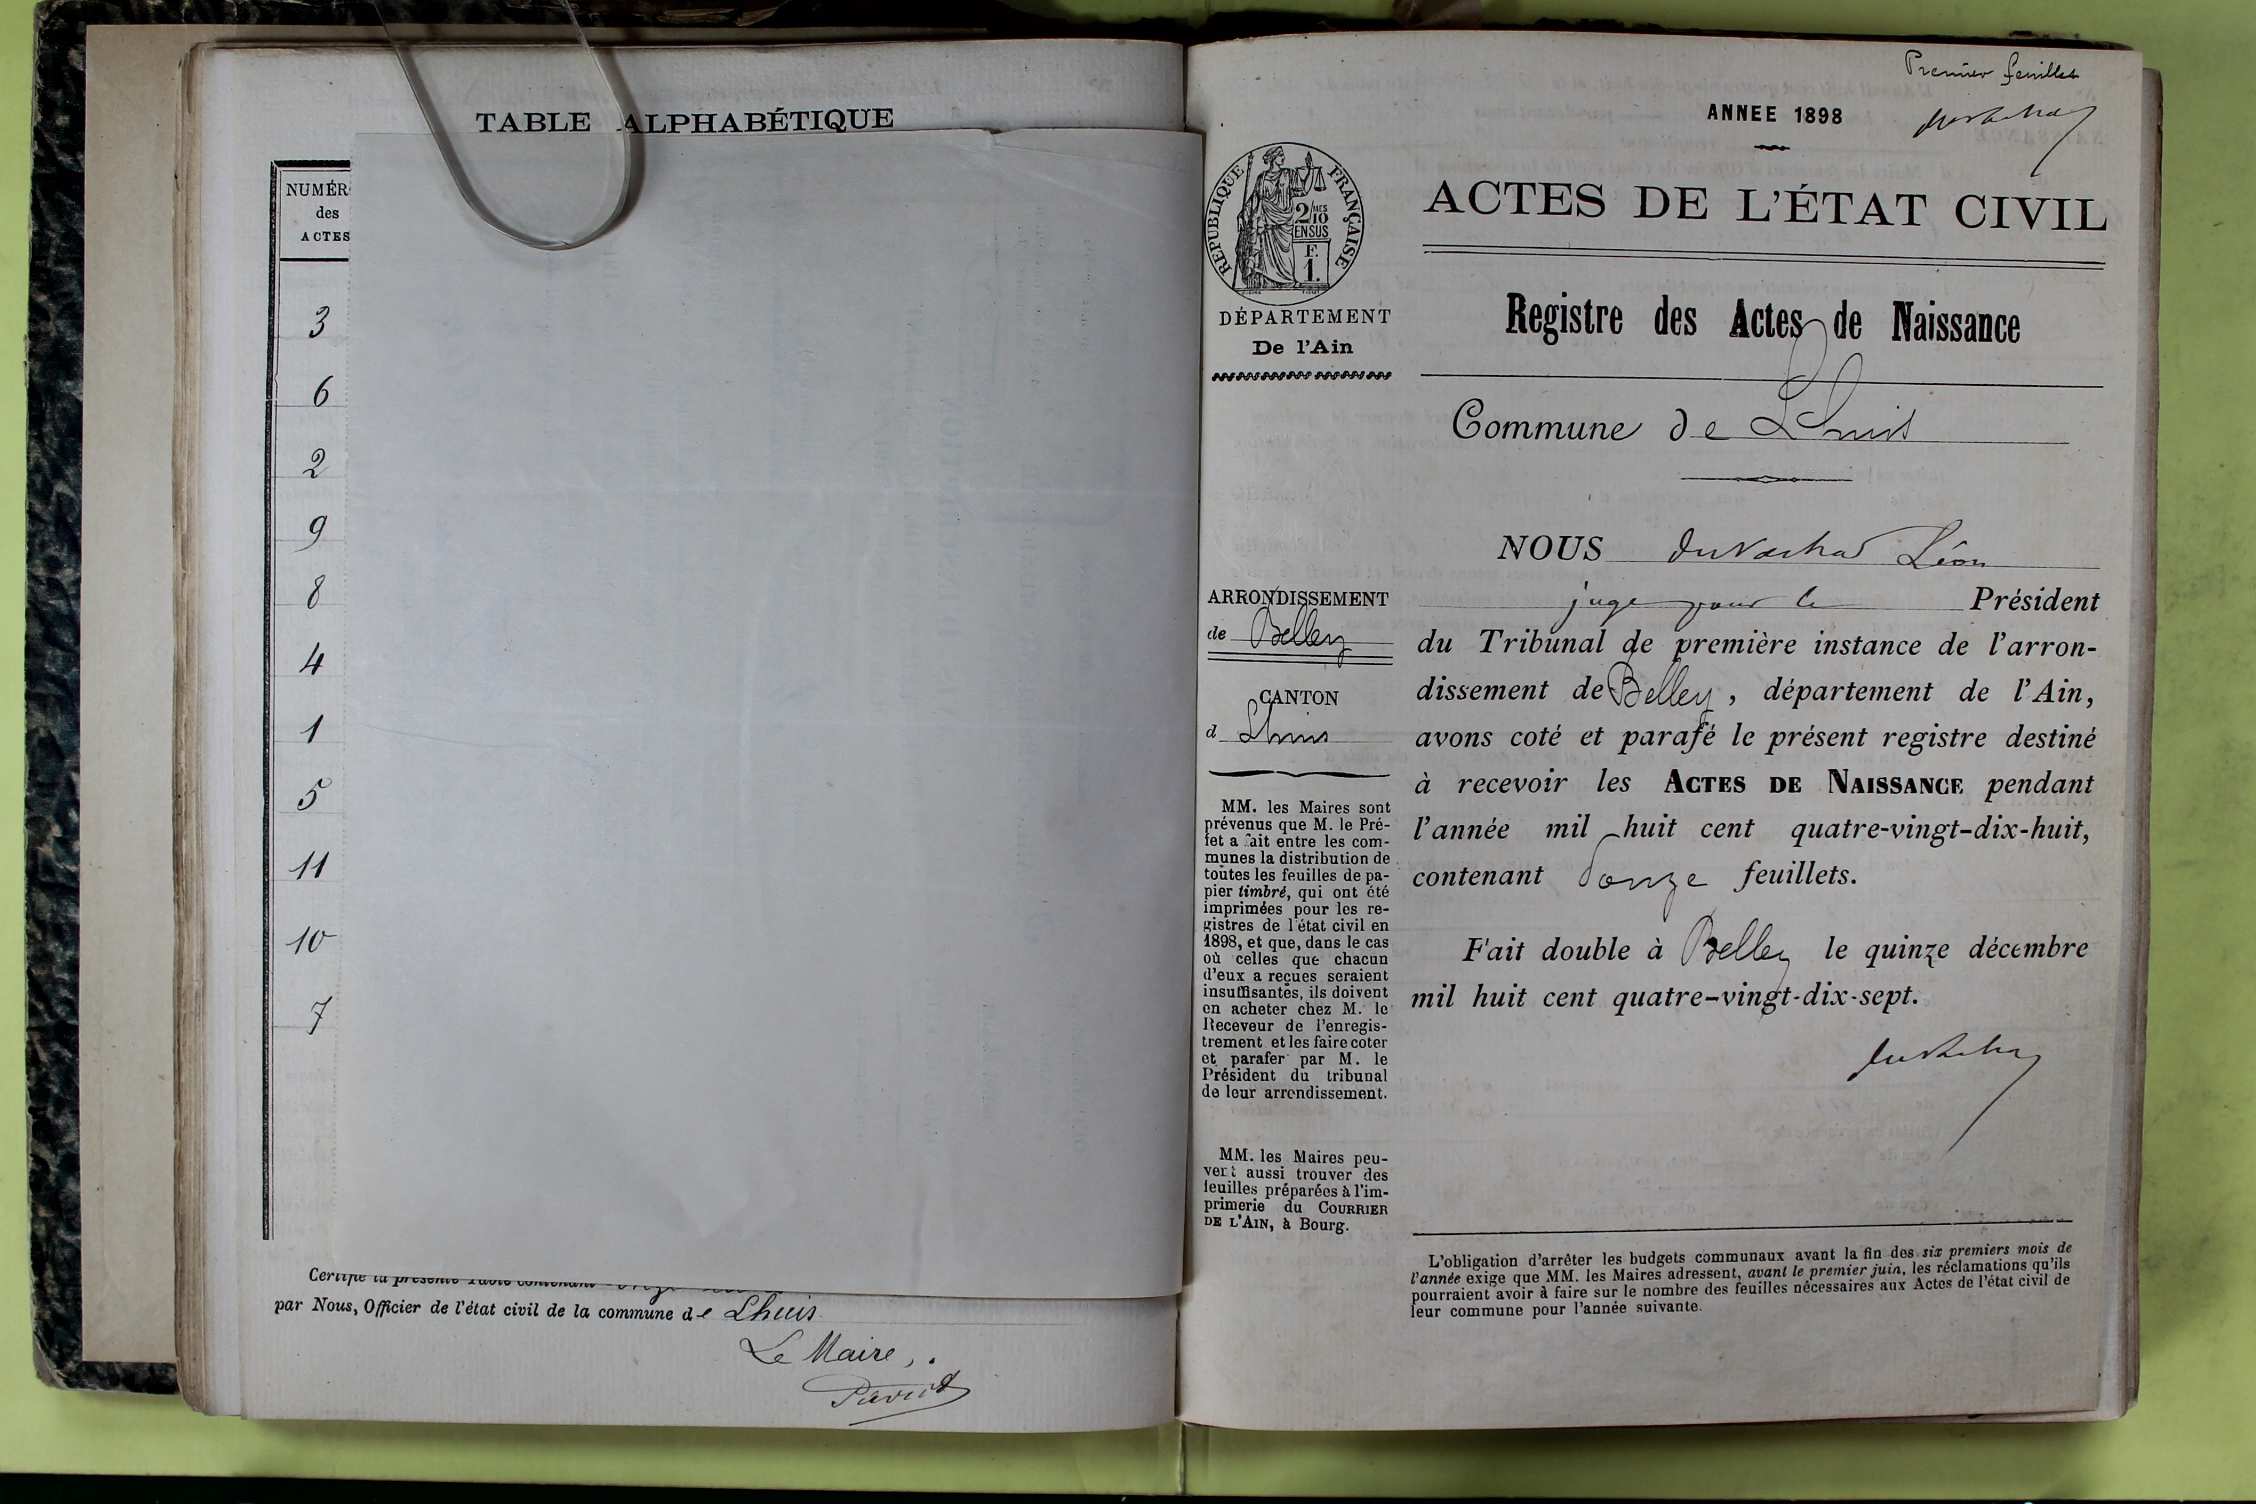 TABLE ALPHABÉTIQUE
NUMÉR
des
ACTES
3
6
2
9
8
4
1
5
11
10
7
Certifié la présente Table contenant
par Nous, Officier de l'état civil de la commune de Lhuis
Le Maire,
Premier feuillet
ANNEE 1898
RÉPUBLIQUE FRANÇAISE
2/10 MES
EN SUS
F.
1.
DÉPARTEMENT
De l'Ain
ARRONDISSEMENT
de Belley
CANTON
d Lhuis
MM. les Maires sont
prévenus que M. le Pré-
fet a fait entre les com-
munes la distribution de
toutes les feuilles de pa-
pier timbré, qui ont été
imprimées pour les re-
gistres de l'état civil en
1898, et que, dans le cas
où celles que chacun
d'eux a reçues seraient
insuffisantes, ils doivent
en acheter chez M. le
Receveur de l'enregis-
trement et les faire coter
et parafer par M. le
Président du tribunal
de leur arrondissement.
MM. les Maires peu-
vent aussi trouver des
feuilles préparées à l'im-
primerie du COURRIER
DE L'AIN, à Bourg.
ACTES DE L'ÉTAT CIVIL
Registre des Actes de Naissance
Commune de Lhuis
NOUS Léon
juge pour le Président
du Tribunal de première instance de l'arron-
dissement de Belley, département de l'Ain,
avons coté et parafé le présent registre destiné
à recevoir les ACTES DE NAISSANCE pendant
l'année mil huit cent quatre-vingt-dix-huit,
contenant douze feuillets.
Fait double à Belley le quinze décembre
mil huit cent quatre-vingt-dix-sept.
L'obligation d'arrêter les budgets communaux avant la fin des six premiers mois de
l'année exige que MM. les Maires adressent, avant le premier juin, les réclamations qu'ils
pourraient avoir à faire sur le nombre des feuilles nécessaires aux Actes de l'état civil de
leur commune pour l'année suivante.